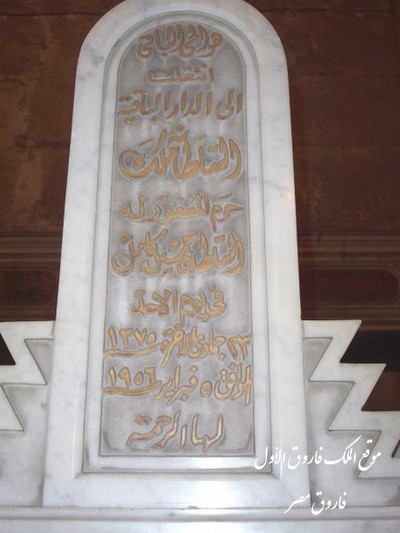 هو الحي الباقي
انتقلت
الى الدار الباقية
السلطانة ملك
حرم المغفور له
السلطان حسين كامل
في يوم الاحد
٢٣ جمادى الاخرة سنة ١٣٧٥
الموافق ٥ فبراير سنة ١٩٥٦
لها الرحمة
موقع الملك فاروق الأول
فاروق مصر